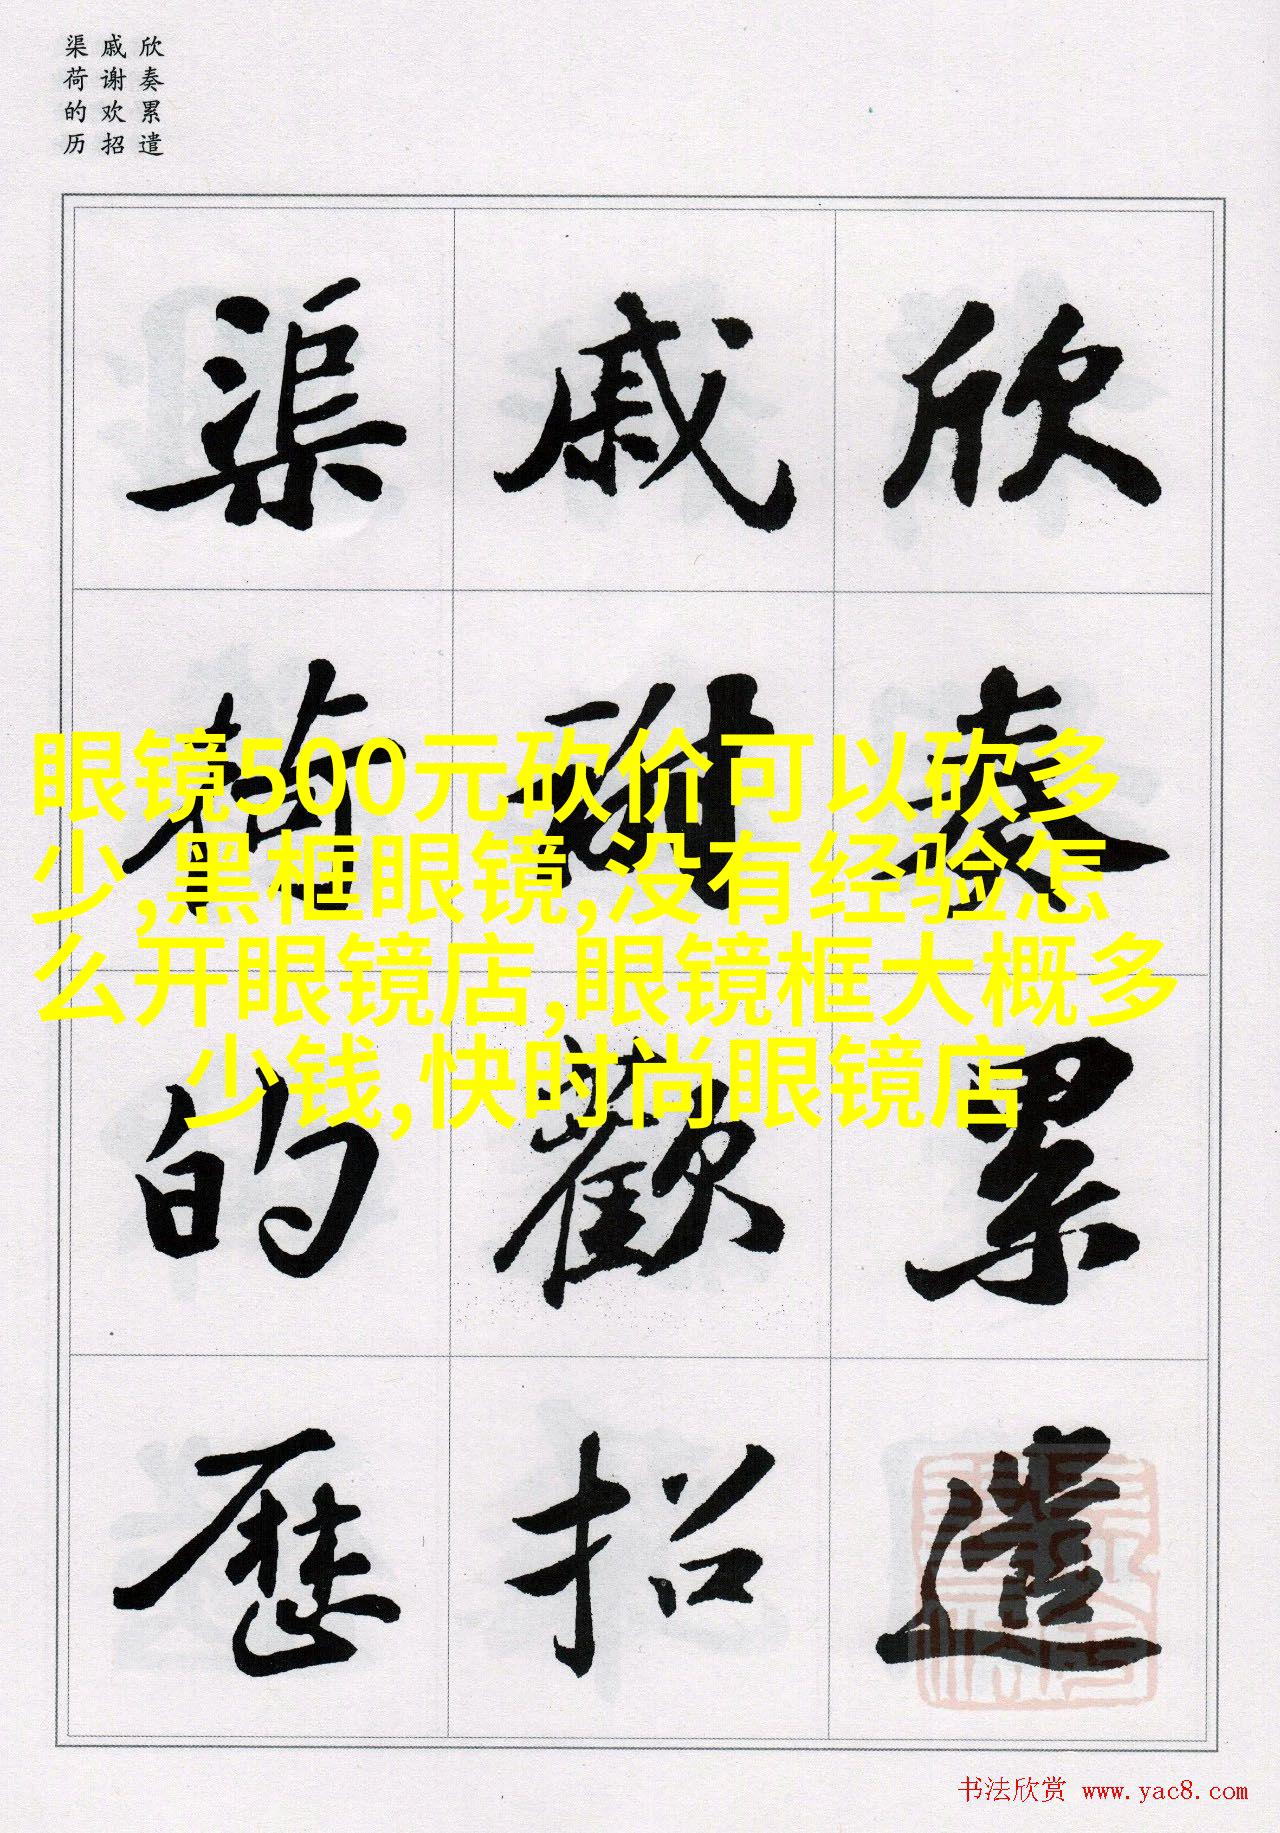 欣奏累遣
戚谢欢招
渠荷的历
欣奏累遣
戚謝歡招
渠荷的歷
眼镜500元砍价可以砍多
少,黑框眼镜,没有经验怎
么开眼镜店,眼镜框大概多
少钱,快时尚眼镜店
书法欣赏 www.yac8.com